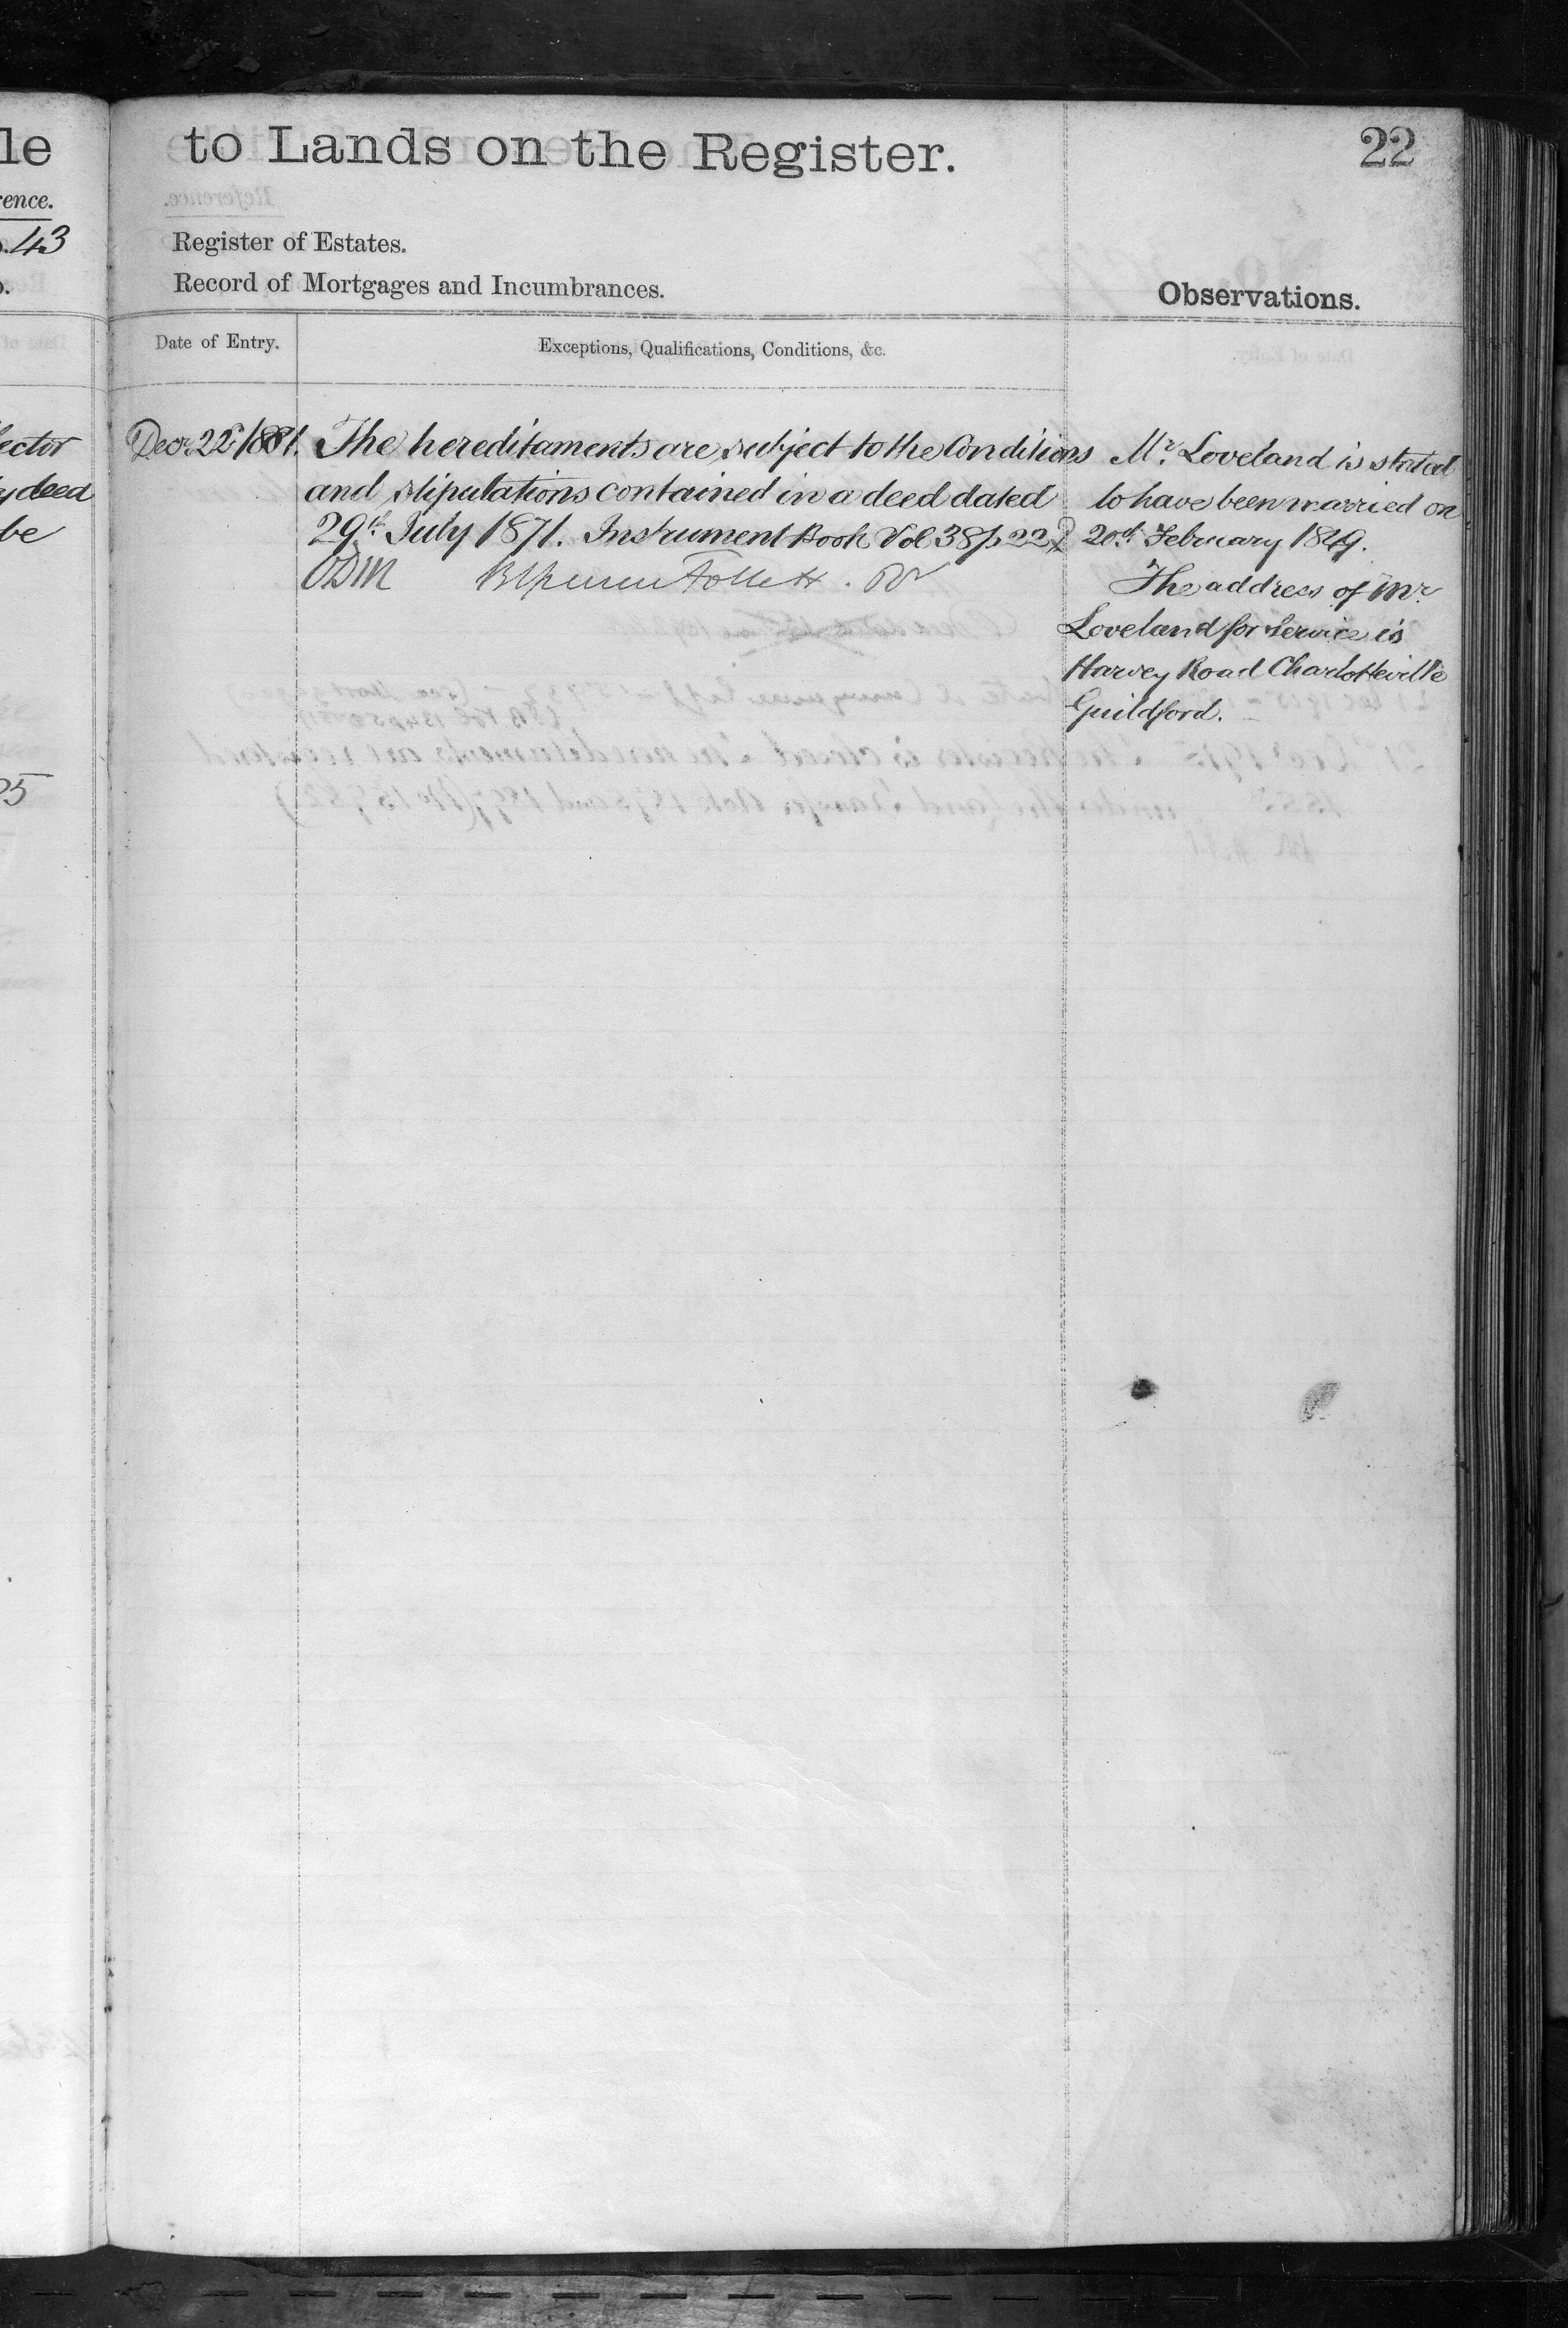 le
to Lands on the Register.
22
rence.
43
Register of Estates.
Record of Mortgages and Incumbrances.
Observations.
Date of Entry.
Exceptions, Qualifications, Conditions, &c.
Decr. 22d 1881.
The hereditaments are subject to the Conditions
and stipulations contained in a deed dated
29th July 1871. Instrument Book Vol 38 p 22
ODM
Follett
Mr. Loveland is stated
to have been married on
20th February 1849.
The address of Mr
Loveland for Service is
Harvey Road Charlotteville
Guildford.
ector
deed
be